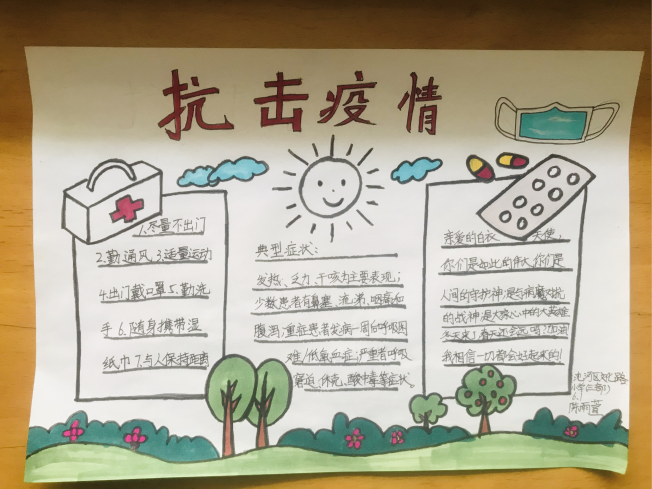 抗击疫情
1.尽量不出门
2.勤通风 3.适量运动
4.出门戴口罩 5.勤洗
手 6.随身携带湿
纸巾 7.与人保持距离
典型症状:
发热、乏力、干咳为主要表现;
少数患者有鼻塞、流涕、咽痛和
腹泻;重症患者发病一周后呼吸困
难/低氧血症;严重者呼吸
窘迫、休克、酸中毒等症状。
亲爱的白衣天使,
你们是如此的伟大,你们是
人间的守护神!是与病魔对抗
的战神!是大家心中的大英雄
冬天来了,春天还会远吗?加油
我相信一切都会好起来的!
沈河区文化路
小学
陈雨萱